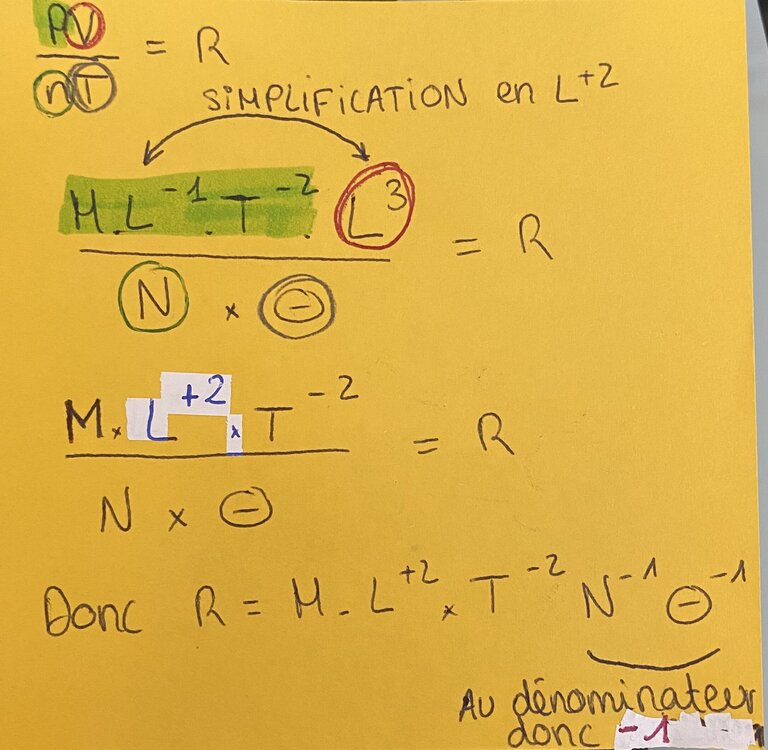 PV
nT
= R
SIMPLIFICATION en L⁺²
M.L⁻¹.T⁻². L³
N × Θ
= R
M×L⁺²×T⁻²
N × Θ
= R
Donc R = M.L⁺²×T⁻² N⁻¹ Θ⁻¹
Au dénominateur
donc -1